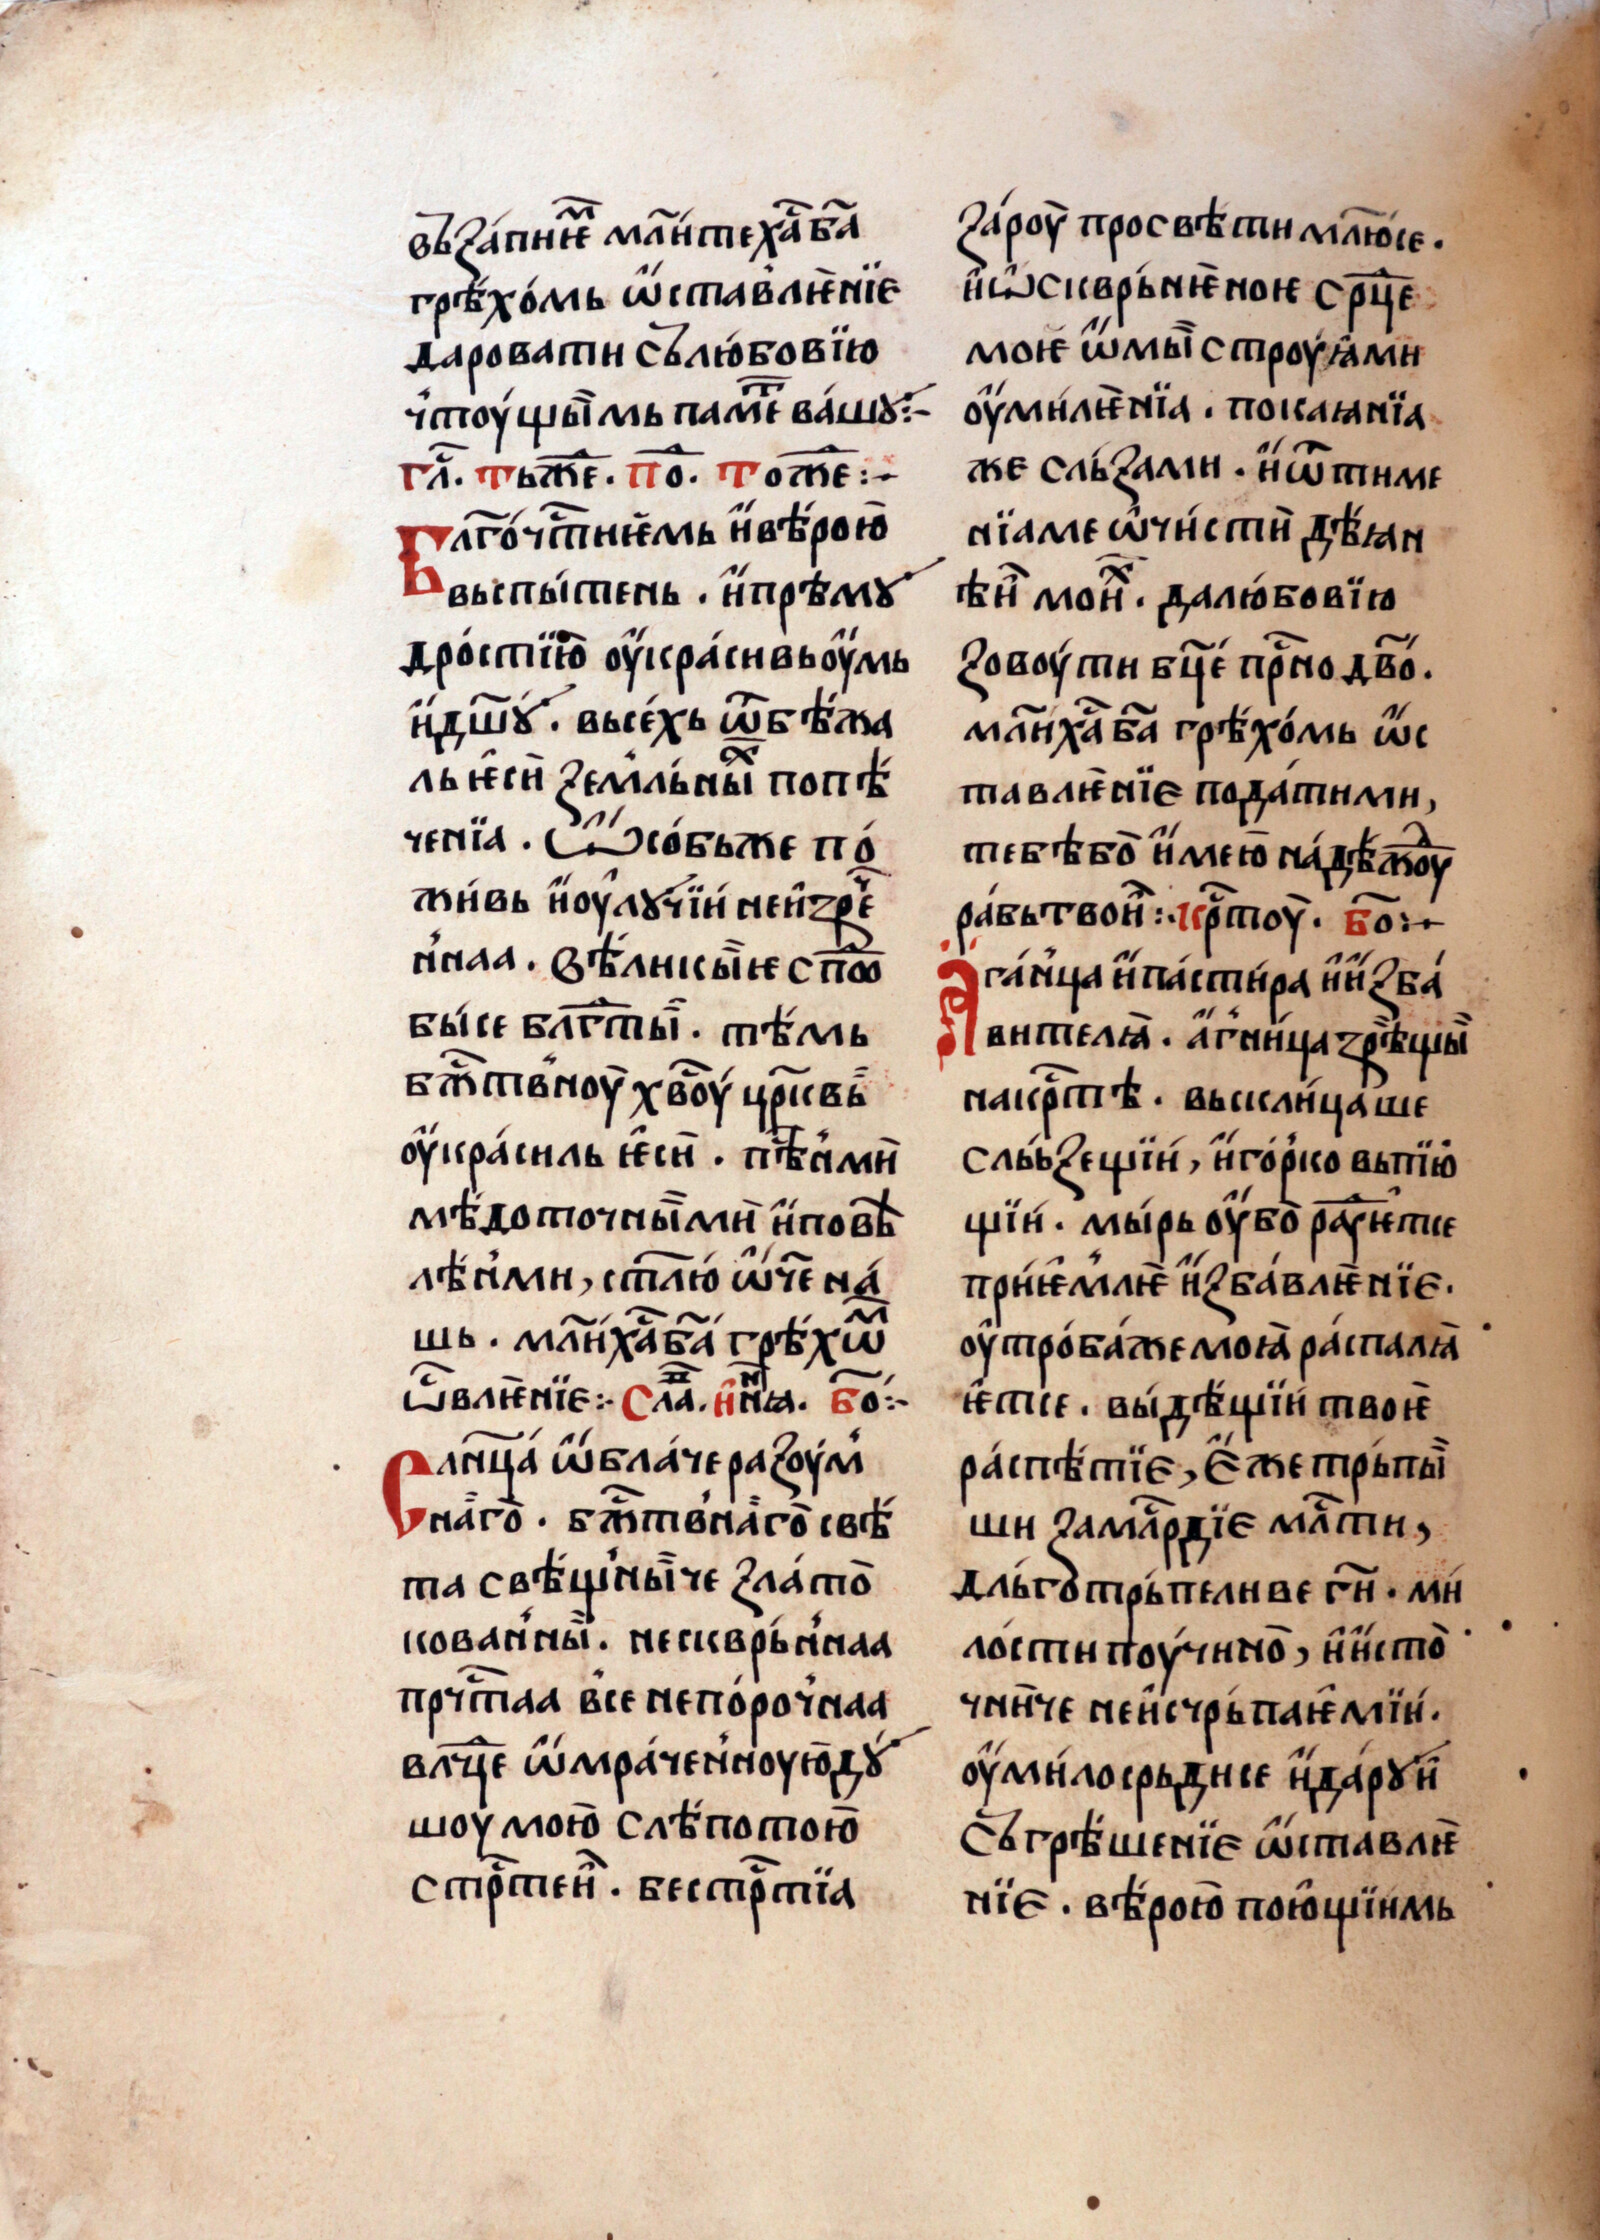 въꙁа́пнїеⷨ мл҃и́те ха҇ ба҃
грѣхо́мь ѡ҆ставлѥ́нїе
даровати съ лю́бовїю
ч҆тоу́щыимь паме҇ⷮ ва́шꙋ:-
гл҃. тьⷤе. по҇. тоⷤе:-
Бл҃го́ч҇тиѥмь и҆ вѣ́рою
вьспы́тѥнь. и҆ прѣмꙋ́
дро́стїю ѹ҆кра́сивь ѹ҆́мь
и҆ дш҃ꙋ́. высе́хь ѿбѣжа
ль ѥ҆си́ ꙁемльны́иⷯ попѣ
ченїа. Ѡ҆со́бь же по́
живь и҆ ѹ҆лꙋ́чїи неи҆ꙁре҇
н҆наа. Вѣ́ликыѥ спⷪ҇о
бы́се бл҃гⷭ҇ты. тѣ́мь
бжⷭ҇тв҆ноу хв҃оу́ цр҃квь
ѹ҆кра́силь ѥ҆си́. пѣ҇н҆ми
мѣ́доточныими и҆ повѣ
лѣ́н҆ми, ст҃лю́ ѡ҆́ч҃е на́
шь. мл҃и́ ха҇ ба҃ грѣ́хѡⷨ
ѿвлѥ́нїе:- Слаⷡ. и҆нꙗⷩ. бо҃:-
Сл҃нца́ ѡ҆блаче раꙁоу́м
наго. бжⷭ҇тв҆наго свѣ́
та свѣ́щныиче ꙁла́то
кован҆ныи. нескврь́н҆наа
прчⷭ҇таа в҆се непоро́ч҆наа
влⷣце ѡ҆мра́чен҆ноую дꙋ́
шоу мою слѣ́потою
стр҇теиⷯ. бестр҇тїа
ꙁа́роу просвѣти млю́се.
и҆ ѡ҆скврь́нѥною ср҇це
моѥ ѡ҆мыи строу́ꙗми
ѹ҆ми́лѥнїа. покаꙗнїа
же слъ́ꙁами. и҆ ѿ тиме
нїа ме ѡ҆чи́сти дѣ́ꙗн
ѣи мои́ⷯ. да лю́бовїю
ꙁовоу́ ти бц҃е прⷭ҇но дв҃о.
мл҃и́ ха҇ ба҃ грѣхо́мь ѡ҆с
тавлѥ́нїе пода́ти ми,
тебѣ бо и҆́мею на́дѣждоу
ра́бь твои:. кр҇тоу. бо҃:-
Ꙗ҆га́н҆ца и҆ па́сти́ра и҆ и҆ꙁба́
вителꙗ. а҆́гни́ца ꙁрещыи
на кр҇тѣ. выскли́цаше
слъ́ꙁещїи, и҆ го́р҆ко вьпїю
щїи. мы́рь ѹ҆́бо раⷣѹѥтсе
прїѥмлѥ и҆ꙁба́влѥнїе.
ѹ҆тро́ба же моꙗ ра́спалꙗ
ѥтсе. вы́дѣщїи твоѥ
ра́спѣтїе, Е҆́же трь́пы
ши ꙁа млⷭ҇рдїе млⷭ҇ти,
длъ́готрь́пеливе гⷭ҇и. ми́
лости поу́чино, и҆ и҆сто
чни́че неи҆счрь́паѥмїи.
ѹ҆ми́лосрь́дисе и҆ да́рꙋи
Съгрѣ́шенїе ѡ҆ставлѥ
нїе. вѣ́рою пою́щїимь